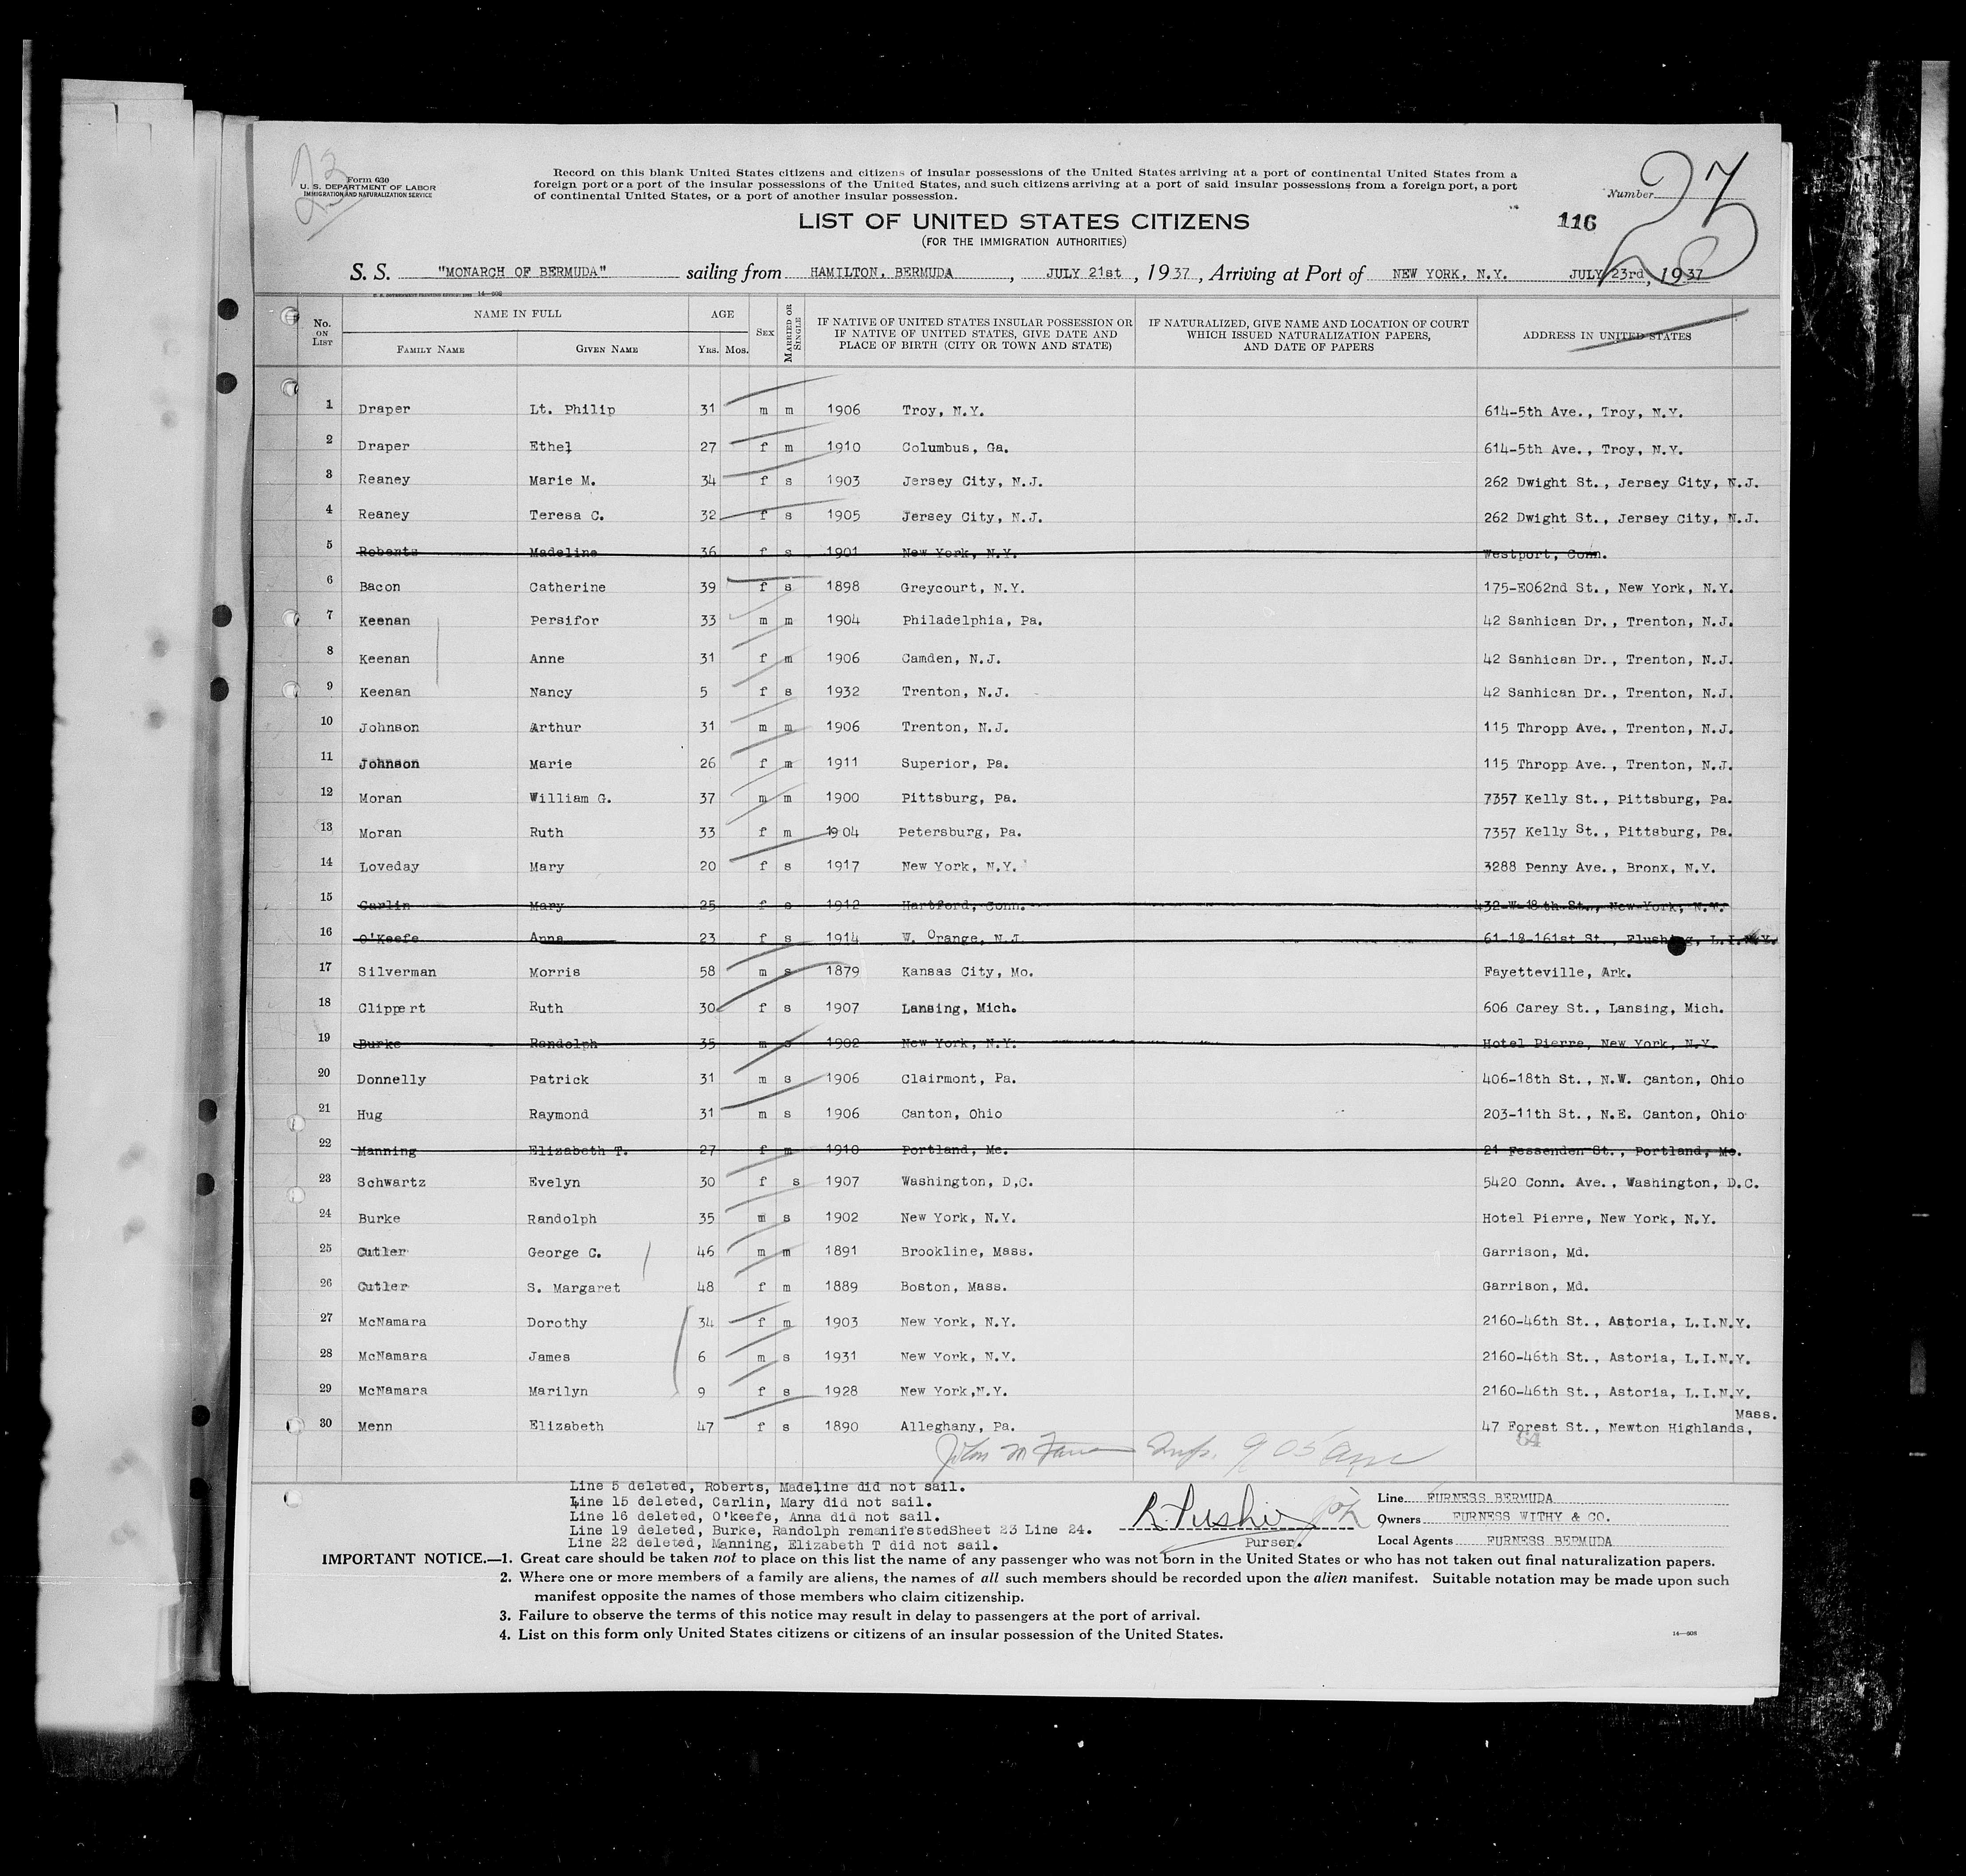 Form 630
U. S. DEPARTMENT OF LABOR
IMMIGRATION AND NATURALIZATION SERVICE
Record on this blank United States citizens and citizens of insular possessions of the United States arriving at a port of continental United States from a
foreign port or a port of the insular possessions of the United States, and such citizens arriving at a port of said insular possessions from a foreign port, a port
of continental United States, or a port of another insular possession.
Number
116
LIST OF UNITED STATES CITIZENS
(FOR THE IMMIGRATION AUTHORITIES)
S. S. "MONARCH OF BERMUDA" sailing from HAMILTON, BERMUDA, JULY 21st, 1937, Arriving at Port of NEW YORK, N.Y. JULY 23rd, 1937
No. ON LIST NAME IN FULL FAMILY NAME GIVEN NAME AGE YRS. MOS. SEX MARRIED OR SINGLE IF NATIVE OF UNITED STATES INSULAR POSSESSION OR IF NATIVE OF UNITED STATES, GIVE DATE AND PLACE OF BIRTH (CITY OR TOWN AND STATE) IF NATURALIZED, GIVE NAME AND LOCATION OF COURT WHICH ISSUED NATURALIZATION PAPERS, AND DATE OF PAPERS ADDRESS IN UNITED STATES
1 Draper Lt. Philip 31 m m 1906 Troy, N.Y. 614-5th Ave., Troy, N.Y.
2 Draper Ethel 27 f m 1910 Columbus, Ga. 614-5th Ave., Troy, N.Y.
3 Reaney Marie M. 34 f s 1903 Jersey City, N.J. 262 Dwight St., Jersey City, N.J.
4 Reaney Teresa C. 32 f s 1905 Jersey City, N.J. 262 Dwight St., Jersey City, N.J.
5 Roberts Madeline 36 f s 1901 New York, N.Y. Westport, Conn.
6 Bacon Catherine 39 f s 1898 Greycourt, N.Y. 175-E062nd St., New York, N.Y.
7 Keenan Persifor 33 m m 1904 Philadelphia, Pa. 42 Sanhican Dr., Trenton, N.J.
8 Keenan Anne 31 f m 1906 Camden, N.J. 42 Sanhican Dr., Trenton, N.J.
9 Keenan Nancy 5 f s 1932 Trenton, N.J. 42 Sanhican Dr., Trenton, N.J.
10 Johnson Arthur 31 m m 1906 Trenton, N.J. 115 Thropp Ave., Trenton, N.J.
11 Johnson Marie 26 f m 1911 Superior, Pa. 115 Thropp Ave., Trenton, N.J.
12 Moran William G. 37 m m 1900 Pittsburg, Pa. 7357 Kelly St., Pittsburg, Pa.
13 Moran Ruth 33 f m 1904 Petersburg, Pa. 7357 Kelly St., Pittsburg, Pa.
14 Loveday Mary 20 f s 1917 New York, N.Y. 3288 Penny Ave., Bronx, N.Y.
15 Carlin Mary 25 f s 1912 Hartford, Conn. 432-W-18th St., New York, N.Y.
16 O'Keefe Anna 23 f s 1914 W. Orange, N.J. 61-18-161st St., Flushing, L.I.N.Y.
17 Silverman Morris 58 m s 1879 Kansas City, Mo. Fayetteville, Ark.
18 Clippert Ruth 30 f s 1907 Lansing, Mich. 606 Carey St., Lansing, Mich.
19 Burke Randolph 35 m s 1902 New York, N.Y. Hotel Pierre, New York, N.Y.
20 Donnelly Patrick 31 m s 1906 Clairmont, Pa. 406-18th St., N.W. Canton, Ohio
21 Hug Raymond 31 m s 1906 Canton, Ohio 203-11th St., N.E. Canton, Ohio
22 Manning Elizabeth T. 27 f m 1910 Portland, Me. 21 Fessenden St., Portland, Me.
23 Schwartz Evelyn 30 f s 1907 Washington, D,C. 5420 Conn. Ave., Washington, D.C.
24 Burke Randolph 35 m s 1902 New York, N.Y. Hotel Pierre, New York, N.Y.
25 Cutler George C. 46 m m 1891 Brookline, Mass. Garrison, Md.
26 Cutler S. Margaret 48 f m 1889 Boston, Mass. Garrison, Md.
27 McNamara Dorothy 34 f m 1903 New York, N.Y. 2160-46th St., Astoria, L.I.N.Y.
28 McNamara James 6 m s 1931 New York, N.Y. 2160-46th St., Astoria, L.I.N.Y.
29 McNamara Marilyn 9 f s 1928 New York,N.Y. 2160-46th St., Astoria, L.I.N.Y.
30 Menn Elizabeth 47 f s 1890 Alleghany, Pa. 47 Forest St., Newton Highlands, Mass.
64
Insp. 9 05 am
Line 5 deleted, Roberts, Madeline did not sail.
Line 15 deleted, Carlin, Mary did not sail.
Line 16 deleted, O'keefe, Anna did not sail.
Line 19 deleted, Burke, Randolph remanifestedSheet 23 Line 24.
Line 22 deleted, Manning, Elizabeth T did not sail.
Purser.
Line FURNESS BERMUDA
Owners FURNESS WITHY & CO.
Local Agents FURNESS BERMUDA
IMPORTANT NOTICE.—1. Great care should be taken not to place on this list the name of any passenger who was not born in the United States or who has not taken out final naturalization papers.
2. Where one or more members of a family are aliens, the names of all such members should be recorded upon the alien manifest. Suitable notation may be made upon such
manifest opposite the names of those members who claim citizenship.
3. Failure to observe the terms of this notice may result in delay to passengers at the port of arrival.
4. List on this form only United States citizens or citizens of an insular possession of the United States.
14—608